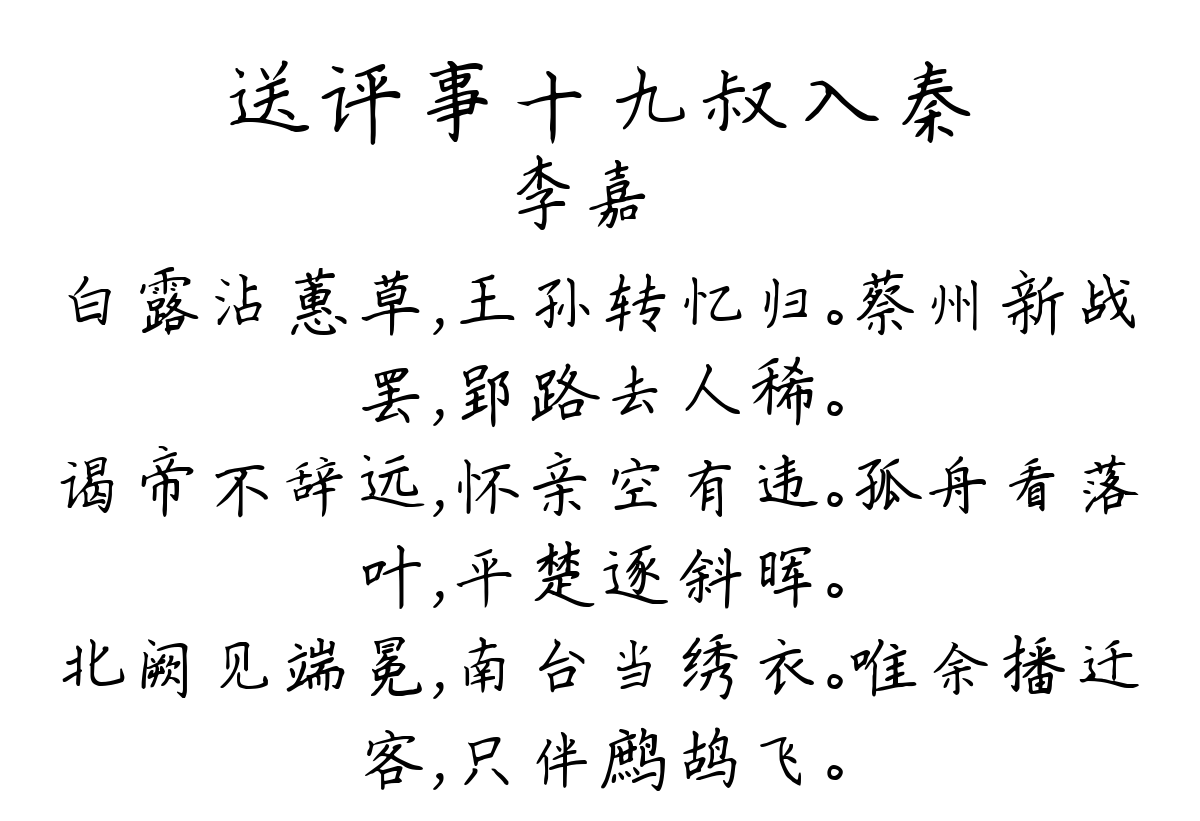 送评事十九叔入秦
李嘉
白露沾蕙草,王孙转忆归。蔡州新战
罢,郢路去人稀。
谒帝不辞远,怀亲空有违。孤舟看落
叶,平楚逐斜晖。
北阙见端冕,南台当绣衣。唯余播迁
客,只伴鹧鸪飞。